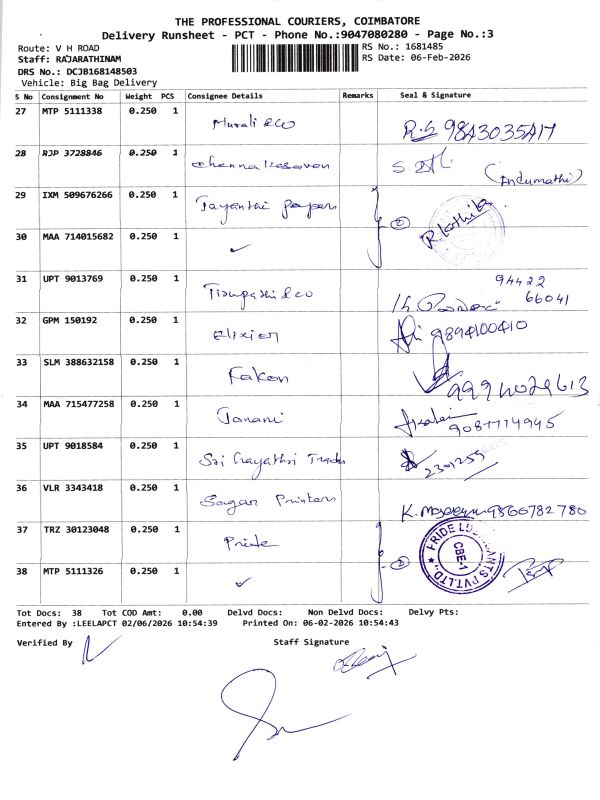 THE PROFESSIONAL COURIERS, COIMBATORE
Delivery Runsheet - PCT - Phone No.:9047080280 - Page No.:3
Route: V H ROAD
RS No.: 1681485
Staff: RAJARATHINAM
RS Date: 06-Feb-2026
DRS No.: DCJB168148503
Vehicle: Big Bag Delivery
S No Consignment No Weight PCS Consignee Details Remarks Seal & Signature
27 MTP 5111338 0.250 1 Murali & co R.S 9843035417
28 RJP 3728846 0.250 1 Chenna Kesavan (Indumathi)
29 IXM 509676266 0.250 1 Jayanthi papers ② Rlathika
30 MAA 714015682 0.250 1 ✓
31 UPT 9013769 0.250 1 Tirupathi & co 94422 66041
32 GPM 150192 0.250 1 Elixier 9894100410
33 SLM 388632158 0.250 1 Fakon
34 MAA 715477258 0.250 1 Janani 9087774945
35 UPT 9018584 0.250 1 Sri Gayathri Trades 2301255
36 VLR 3343418 0.250 1 Sagar Printers 9866782780
37 TRZ 30123048 0.250 1 Pride ② PRIDE LUBRICANTS PVT.LTD. CBE-1
38 MTP 5111326 0.250 1 ✓
Tot Docs: 38 Tot COD Amt: 0.00 Delvd Docs: Non Delvd Docs: Delvy Pts:
Entered By :LEELAPCT 02/06/2026 10:54:39 Printed On: 06-02-2026 10:54:43
Verified By Staff Signature